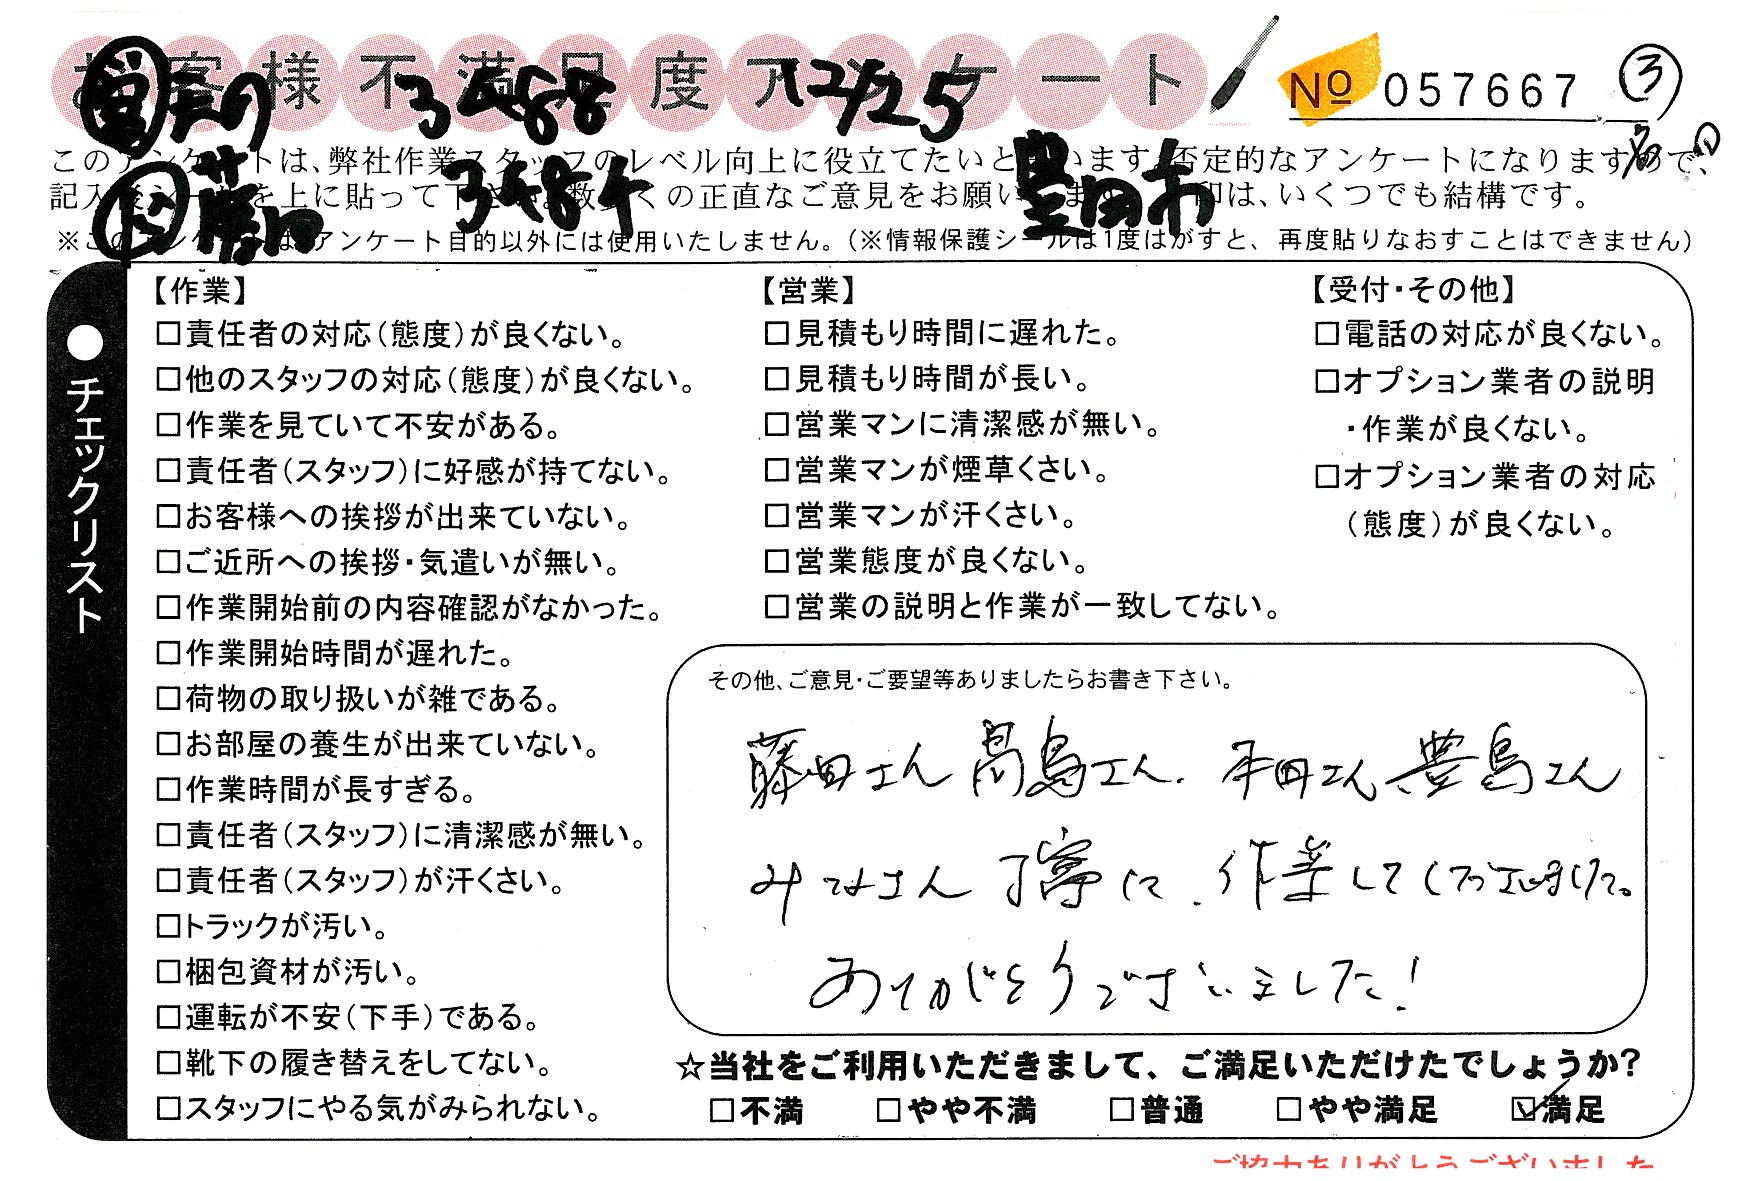 お客様不満足度アンケート
No 057667 ③
3488 12/25
このアンケートは、弊社作業スタッフのレベル向上に役立てたいと思います。否定的なアンケートになりますので、
記入後シールを上に貼って下さい。数多くの正直なご意見をお願いします。印は、いくつでも結構です。
3484 豊田市
※このアンケートは、アンケート目的以外には使用いたしません。(※情報保護シールは1度はがすと、再度貼りなおすことはできません)
●チェックリスト
【作業】
□責任者の対応(態度)が良くない。
□他のスタッフの対応(態度)が良くない。
□作業を見ていて不安がある。
□責任者(スタッフ)に好感が持てない。
□お客様への挨拶が出来ていない。
□ご近所への挨拶・気遣いが無い。
□作業開始前の内容確認がなかった。
□作業開始時間が遅れた。
□荷物の取り扱いが雑である。
□お部屋の養生が出来ていない。
□作業時間が長すぎる。
□責任者(スタッフ)に清潔感が無い。
□責任者(スタッフ)が汗くさい。
□トラックが汚い。
□梱包資材が汚い。
□運転が不安(下手)である。
□靴下の履き替えをしてない。
□スタッフにやる気がみられない。
【営業】
□見積もり時間に遅れた。
□見積もり時間が長い。
□営業マンに清潔感が無い。
□営業マンが煙草くさい。
□営業マンが汗くさい。
□営業態度が良くない。
□営業の説明と作業が一致してない。
【受付・その他】
□電話の対応が良くない。
□オプション業者の説明
・作業が良くない。
□オプション業者の対応
(態度)が良くない。
その他、ご意見・ご要望等ありましたらお書き下さい。
藤田さん 髙島さん、平田さん 豊島さん
みなさん 丁寧に、作業して下さいました。
ありがとうございました!
☆当社をご利用いただきまして、ご満足いただけたでしょうか?
□不満 □やや不満 □普通 □やや満足 ☑満足
ご協力ありがとうございました